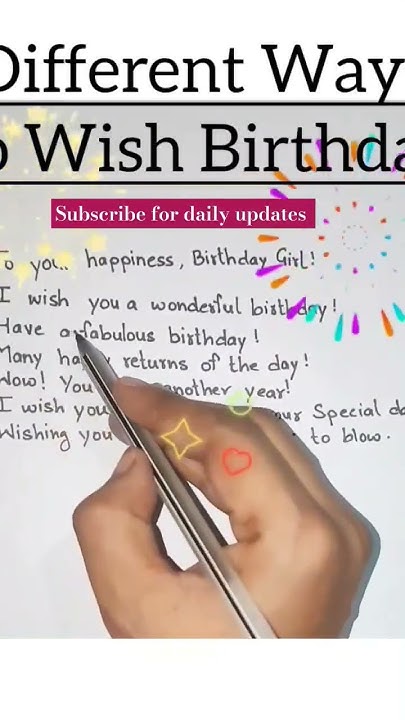 Different Way
o Wish Birthda
Subscribe for daily updates
To you.. happiness, Birthday Girl!
I wish you a wonderful birthday!
Have a fabulous birthday!
Many happy returns of the day!
Wow! You another year!
I wish you your Special da
Wishing you to blow.